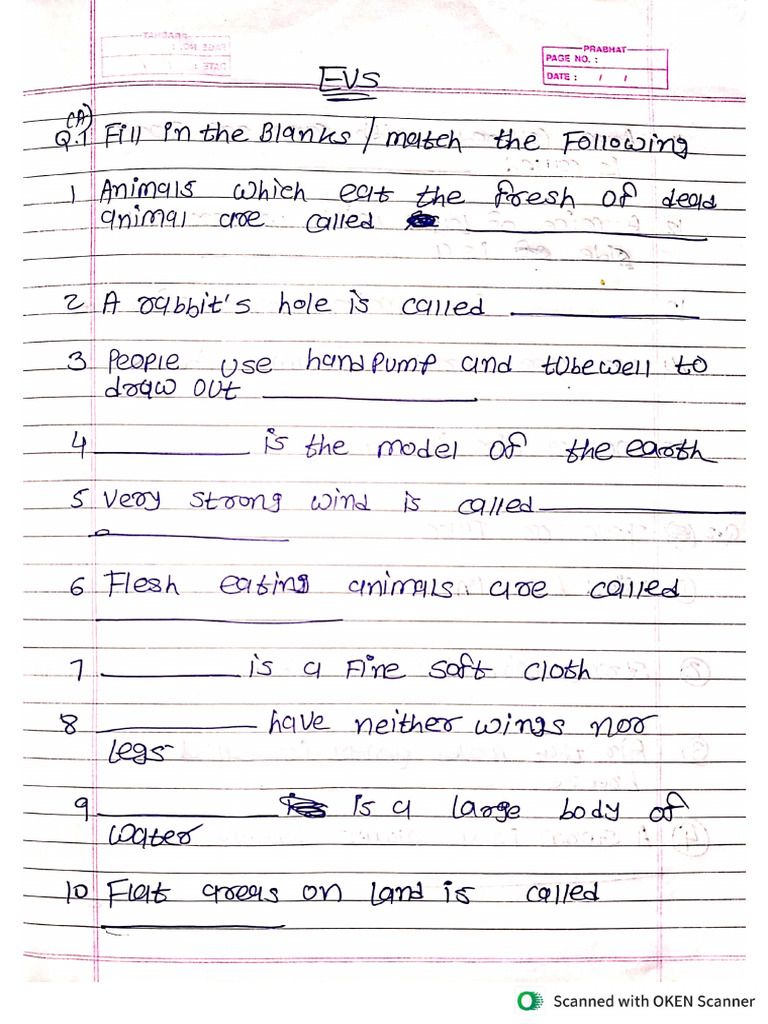 PRABHAT
PAGE NO. :
DATE : / /
EVS
(A)
Q.1 Fill in the Blanks / match the Following
1 Animals which eat the fresh of dead
animal are called ____________
2 A rabbit's hole is called ____________
3 People use handpump and tubewell to
draw out ____________
4 ____________ is the model of the earth
5 Very strong wind is called ____________
____________
6 Flesh eating animals are called
____________
7 ____________ is a Fine soft cloth
8 ____________ have neither wings nor
legs
9 ____________ is a large body of
water
10 Flat areas on land is called
____________
Scanned with OKEN Scanner